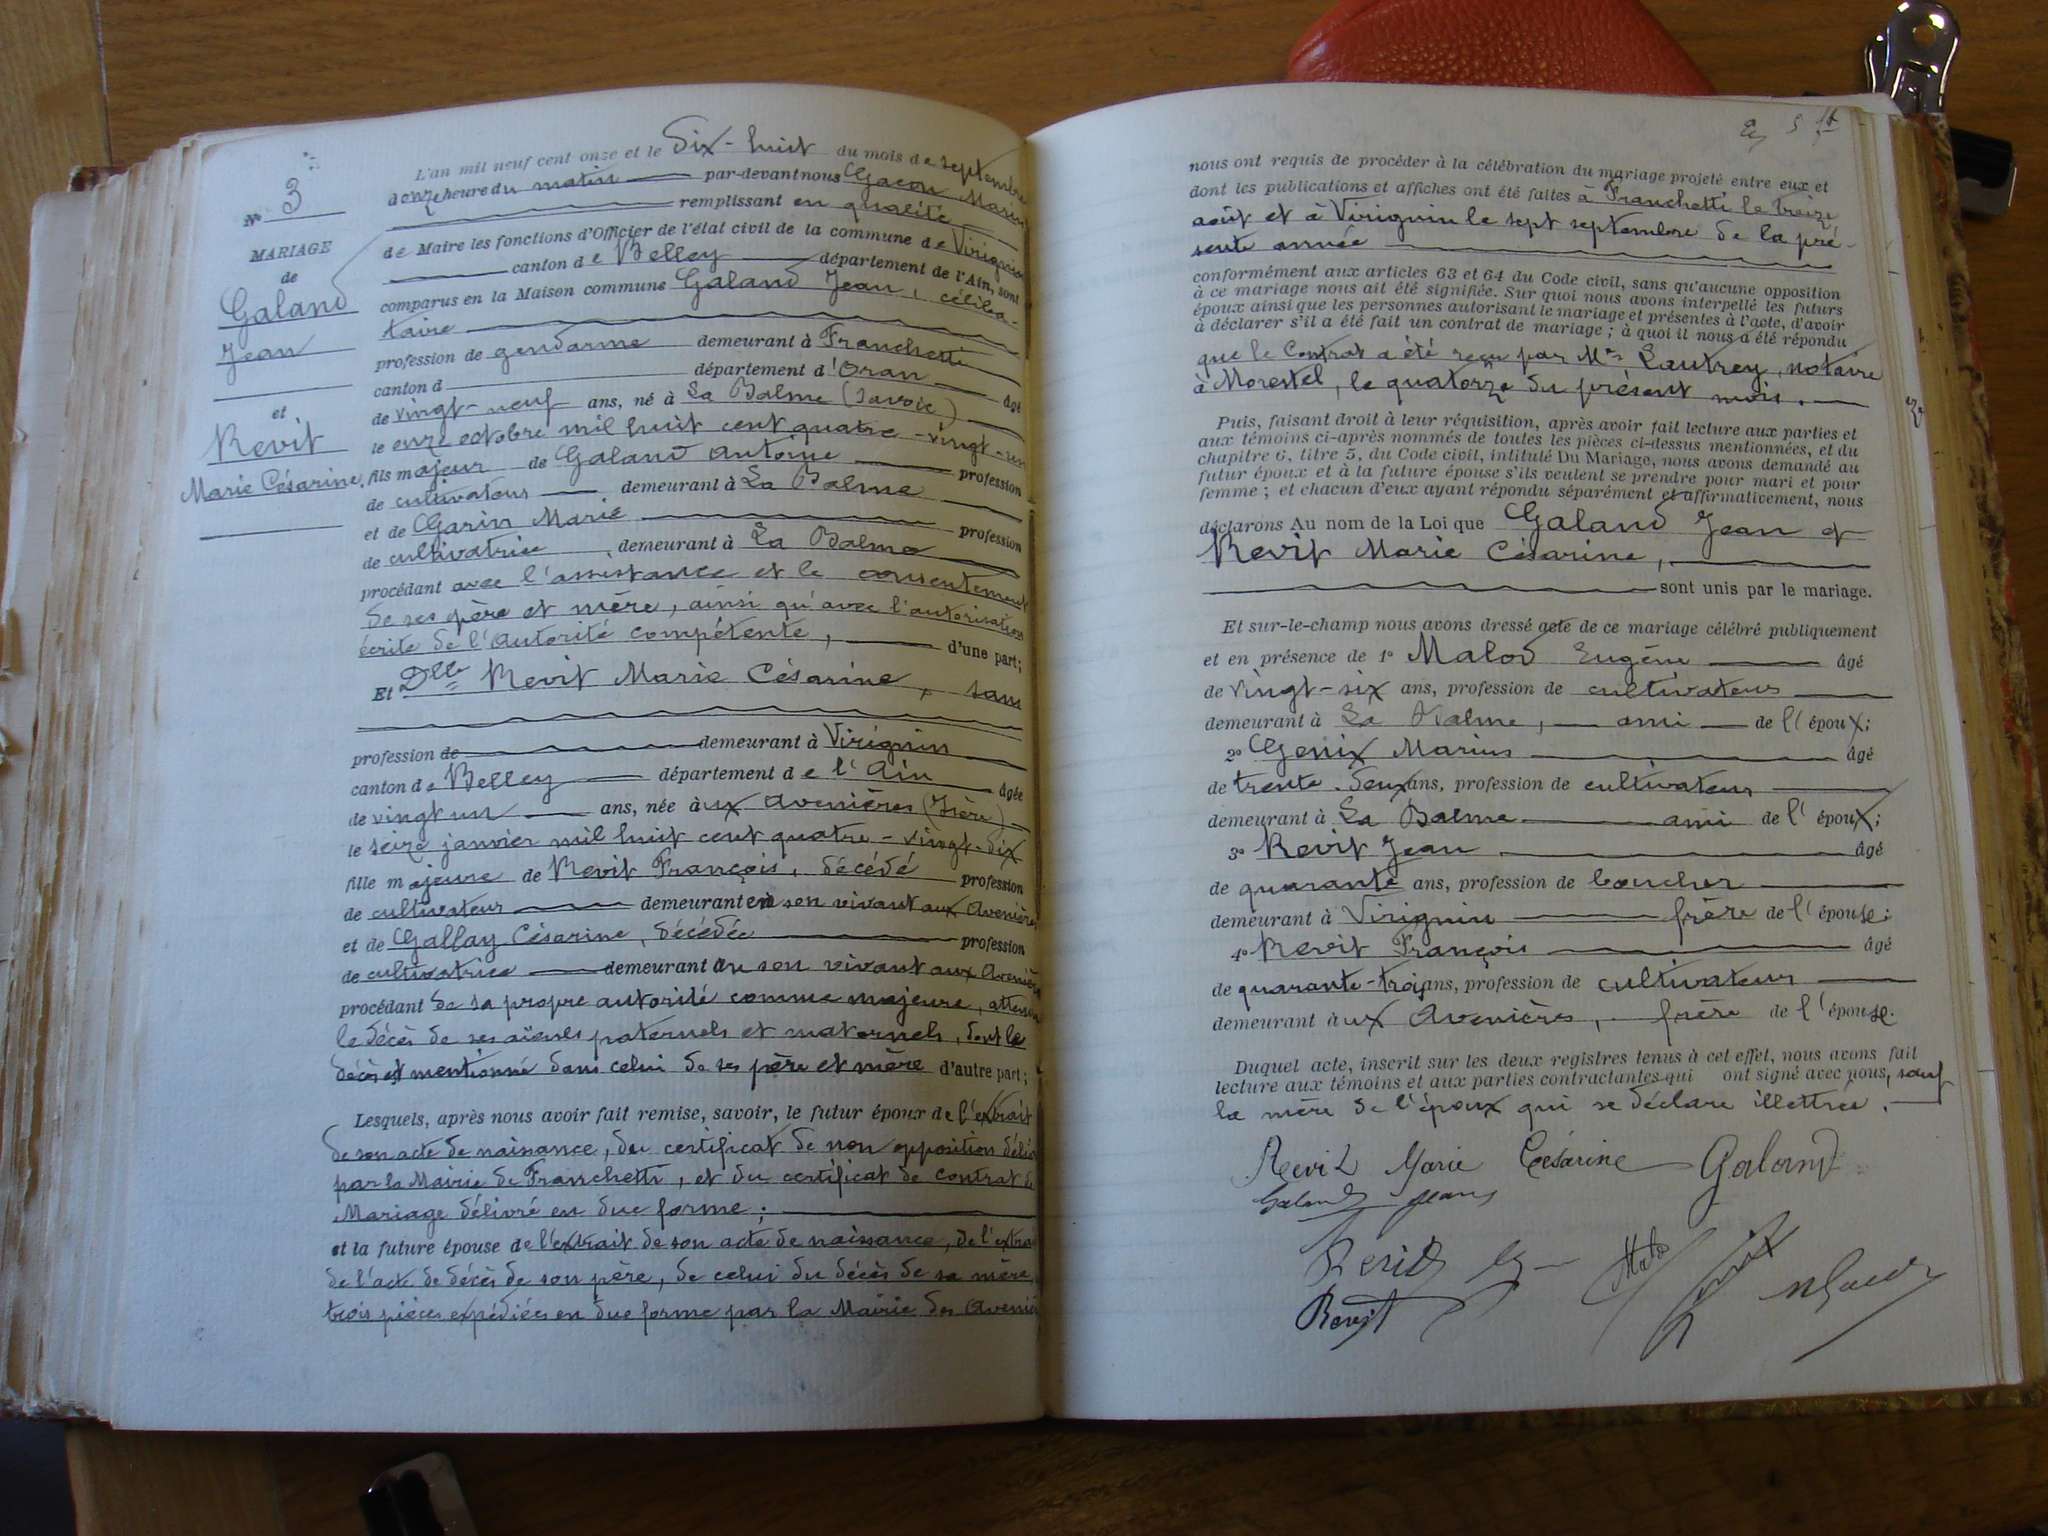 N° 3
MARIAGE
de
Galand
Jean
et
Revit
Marie Césarine.
L'an mil neuf cent onze et le Dix-huit du mois de septembre
à onze heure du matin par-devant nous Gacon Marin
remplissant en qualité
de Maire les fonctions d'Officier de l'état civil de la commune de Virignin
canton de Belley département de l'Ain, sont
comparus en la Maison commune Galand Jean, céliba-
taire
profession de gendarme demeurant à Franchetti
canton d département d'Oran âgé
de vingt-neuf ans, né à La Balme (Savoie)
le onze octobre mil huit cent quatre-vingt-un
fils majeur de Galand Antoine profession
de cultivateur demeurant à La Balme
et de Garin Marie profession
de cultivatrice, demeurant à La Balme
procédant avec l'assistance et le consentement
de ses père et mère, ainsi qu'avec l'autorisation
écrite de l'autorité compétente, d'une part;
Et Dlle Revit Marie Césarine, sans
profession de demeurant à Virignin
canton de Belley département de l'Ain âgée
de vingt un ans, née à ux Avenières (Isère)
le seize janvier mil huit cent quatre-vingt-dix
fille majeure de Revit François, décédé profession
de cultivateur demeurant en son vivant aux Avenières
et de Gallay Césarine, décédée profession
de cultivatrice demeurant en son vivant aux Avenières
procédant de sa propre autorité comme majeure, attendu
le décès de ses aïeuls paternels et maternels, dont le
décès est mentionné dans celui de ses père et mère d'autre part;
Lesquels, après nous avoir fait remise, savoir, le futur époux de l'extrait
de son acte de naissance, du certificat de non opposition délivré
par la Mairie de Franchetti, et du certificat de contrat de
Mariage délivré en due forme;
et la future épouse de l'extrait de son acte de naissance, de l'extrait
de l'acte de décès de son père, de celui du décès de sa mère,
trois pièces expédiées en due forme par la Mairie des Avenières
nous ont requis de procéder à la célébration du mariage projeté entre eux et
dont les publications et affiches ont été faites à Franchetti le treize
août et à Virignin le sept septembre de la pré-
sente année
conformément aux articles 63 et 64 du Code civil, sans qu'aucune opposition
à ce mariage nous ait été signifiée. Sur quoi nous avons interpellé les futurs
époux ainsi que les personnes autorisant le mariage et présentes à l'acte, d'avoir
à déclarer s'il a été fait un contrat de mariage; à quoi il nous a été répondu
que le Contrat a été reçu par Me Lautrey, notaire
à Morestel, le quatorze du présent mois.
Puis, faisant droit à leur réquisition, après avoir fait lecture aux parties et
aux témoins ci-après nommés de toutes les pièces ci-dessus mentionnées, et du
chapitre 6, titre 5, du Code civil, intitulé Du Mariage, nous avons demandé au
futur époux et à la future épouse s'ils veulent se prendre pour mari et pour
femme; et chacun d'eux ayant répondu séparément et affirmativement, nous
déclarons Au nom de la Loi que Galand Jean et
Revit Marie Césarine,
sont unis par le mariage.
Et sur-le-champ nous avons dressé acte de ce mariage célébré publiquement
et en présence de 1° Malod Eugène âgé
de vingt-six ans, profession de cultivateur
demeurant à La Balme, ami de l'époux;
2° Genix Marius âgé
de trente-deux ans, profession de cultivateur
demeurant à La Balme ami de l'époux;
3° Revit Jean âgé
de quarante ans, profession de boucher
demeurant à Virignin frère de l'épouse;
4° Revit François âgé
de quarante-trois ans, profession de cultivateur
demeurant à ux Avenières, frère de l'épouse.
Duquel acte, inscrit sur les deux registres tenus à cet effet, nous avons fait
lecture aux témoins et aux parties contractantes qui ont signé avec nous, sauf
la mère de l'époux qui se déclare illettrée.
Revit Marie Césarine Galand
Galand Jean
Revit
Revit